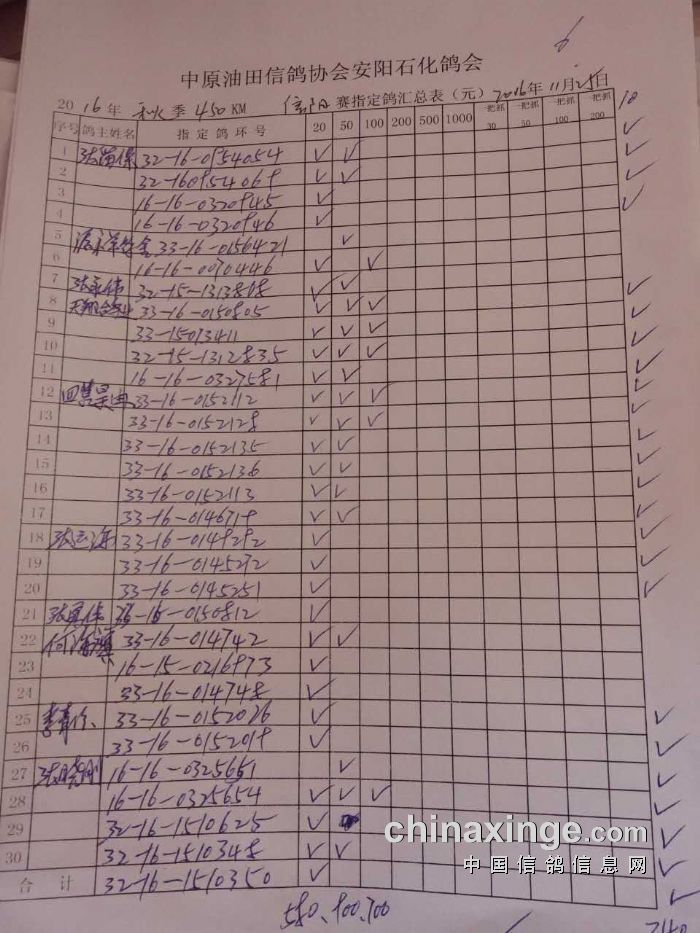 中原油田信鸽协会安阳石化鸽会
2016年 秋季 450KM 信阳 赛指定鸽汇总表（元）2016年11月25日
序号 鸽主姓名 指定鸽环号 20 50 100 200 500 1000 一把抓30 一把抓50 一把抓100 一把抓200 10
1 32-16-0954054 ✓ ✓ ✓
2 32-160954069 ✓ ✓ ✓
3 16-16-0320945 ✓ ✓
4 16-16-0320946 ✓ ✓
5 33-16-0150421 ✓
6 16-16-0070446 ✓ ✓
7 张永伟 32-15-1313808 ✓ ✓ ✓
8 33-16-0150805 ✓ ✓ ✓ ✓
9 33-15073411 ✓ ✓ ✓ ✓
10 32-15-1312835 ✓ ✓ ✓ ✓
11 16-16-0327581 ✓ ✓ ✓
12 33-16-0152112 ✓ ✓ ✓ ✓
13 33-16-0152128 ✓ ✓ ✓ ✓
14 33-16-0152135 ✓ ✓ ✓
15 33-16-0152136 ✓ ✓ ✓
16 33-16-0152113 ✓ ✓ ✓
17 33-16-014671 ✓ ✓ ✓
18 33-16-0149292 ✓ ✓
19 33-16-0145272 ✓ ✓
20 33-16-0145251 ✓ ✓
21 33-16-0150812 ✓
22 33-16-014742 ✓ ✓
23 16-15-0216973 ✓
24 33-16-014748 ✓
25 33-16-0152026 ✓ ✓
26 33-16-0152019 ✓ ✓
27 张晓刚 16-16-0325651 ✓ ✓
28 16-16-0325654 ✓ ✓ ✓ ✓
29 32-16-1510625 ✓ ✓
30 32-16-1510348 ✓ ✓ ✓
合计 32-16-1510350 ✓ ✓
580、900、700
chinaxinge.com
中国信鸽信息网